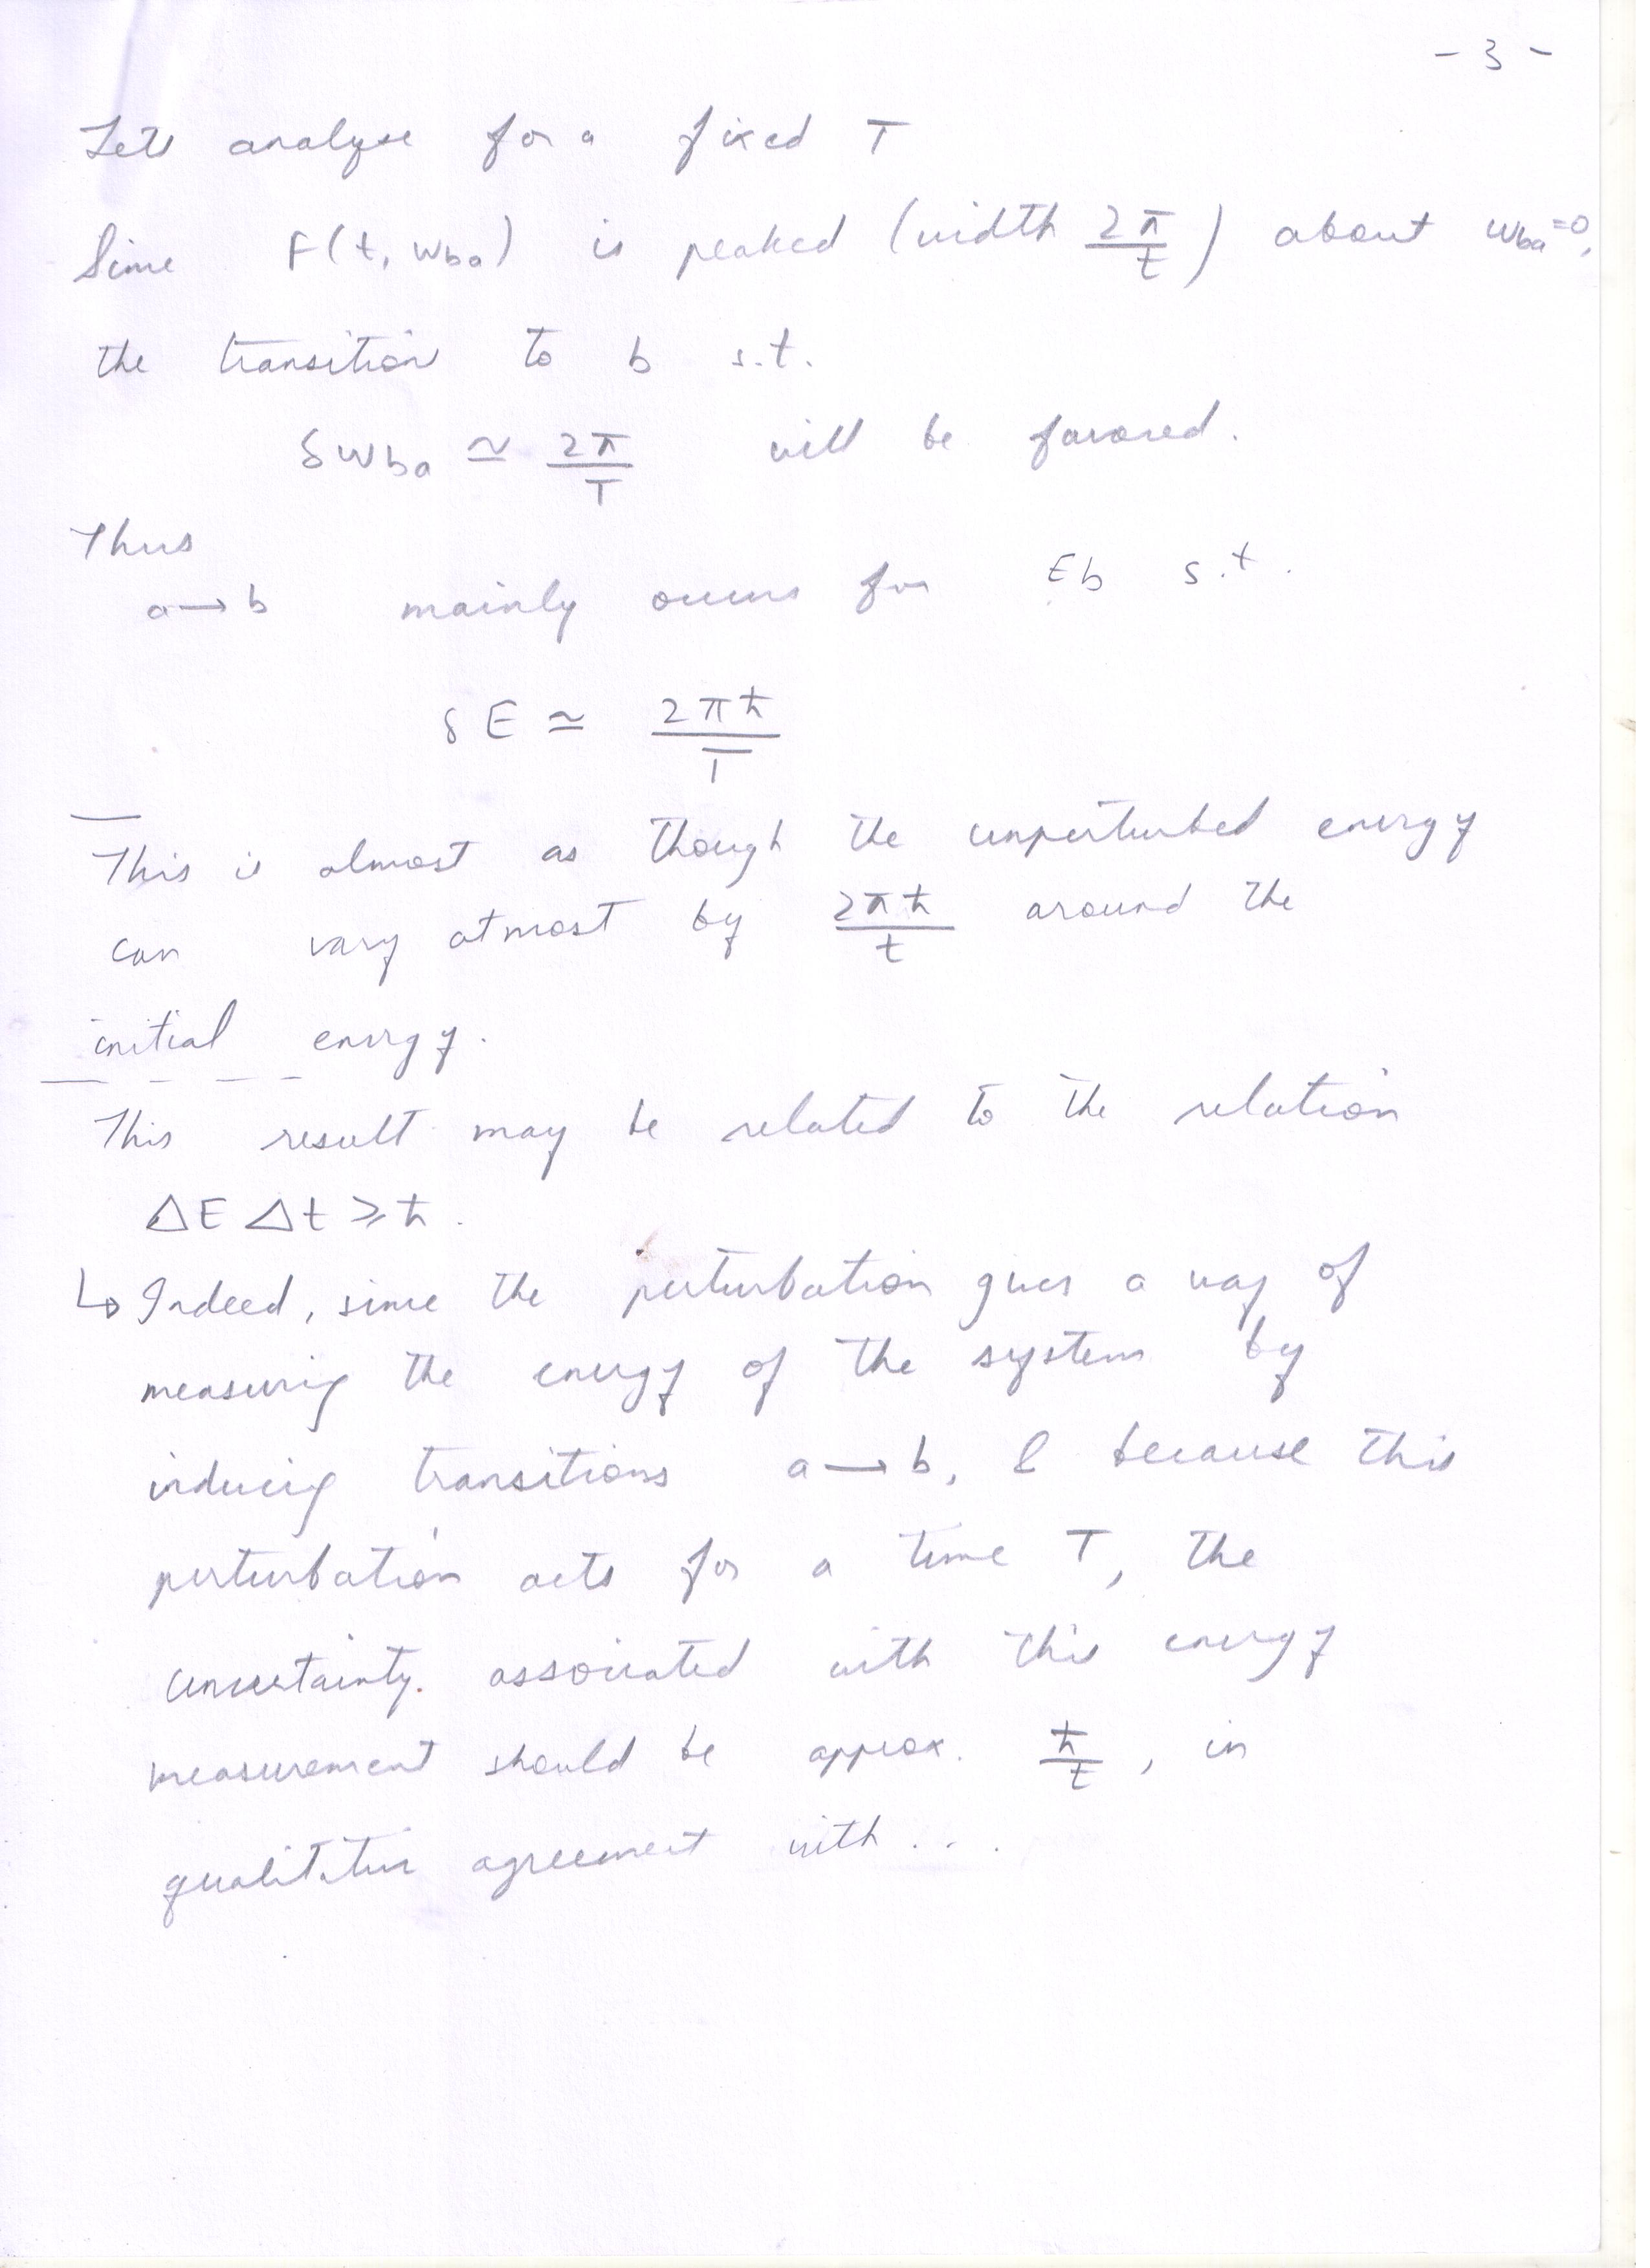 - 3 -
Lets analyse for a fixed T
Since F(t, ωba) is peaked (width 2π/t) about ωba=0,
the transition to b s.t.
δωba ≃ 2π/T will be favored.
Thus
a→b mainly occurs for Eb s.t.
δE ≃ 2πħ/T
This is almost as though the unperturbed energy
can vary atmost by 2πħ/t around the
initial energy.
This result may be related to the relation
ΔE Δt ≥ ħ.
↳ Indeed, since the perturbation gives a way of
measuring the energy of the system by
inducing transitions a→b, & because this
perturbation acts for a time T, the
uncertainty. associated with this energy
measurement should be approx. ħ/t, in
qualitative agreement with ...